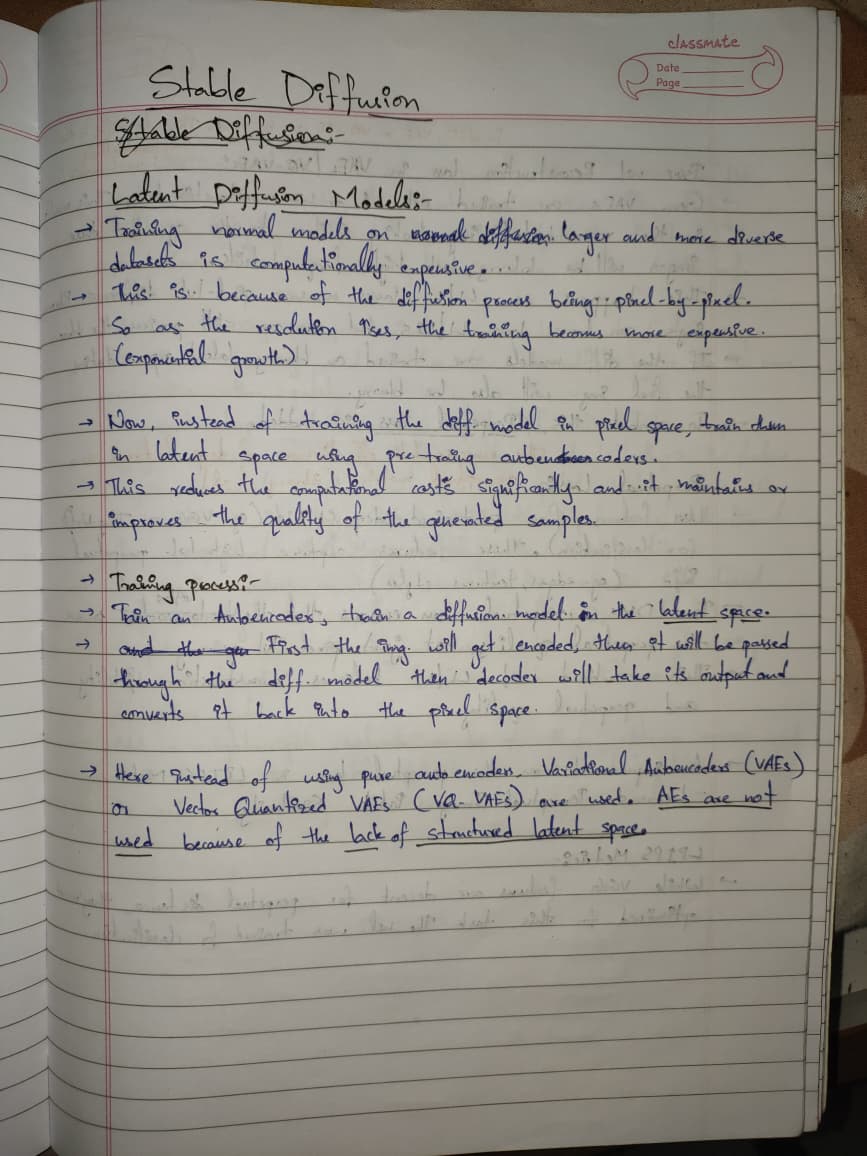 classmate
Date
Page
Stable Diffusion
Stable Diffusion:-
Latent Diffusion Models:-
→ Training normal models on normal diffusion larger and more diverse
datasets is computationally expensive.
→ This is because of the diffusion process being pixel-by-pixel.
So as the resolution ises, the training becomes more expensive.
(exponential growth)
→ Now, instead of training the diff. model in pixel space, train them
in latent space using pre traing autoencoders.
→ This reduces the computational costs significantly and it maintains or
improves the quality of the generated samples.
→ Training process:-
→ Train an Autoencoder, train a diffusion model in the latent space.
→ and the gen First the img. will get encoded, then it will be passed
through the diff. model then decoder will take its output and
converts it back into the pixel space.
→ Here instead of using pure autoencoders, Variational Autoencoders (VAEs)
or Vector Quantized VAEs (VQ-VAEs) are used. AEs are not
used because of the lack of structured latent space.